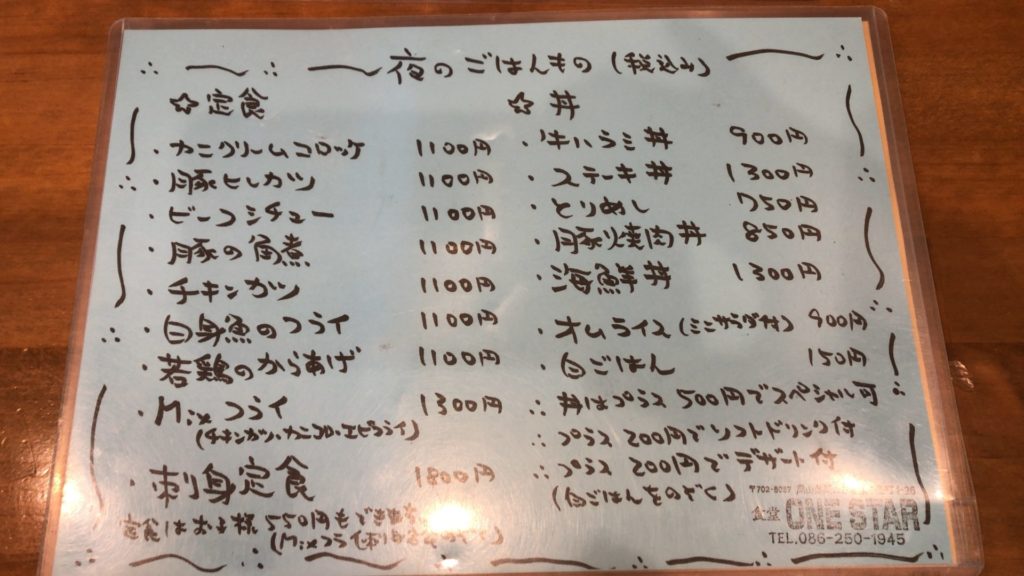 夜のごはんもの (税込み)
☆定食
・カニクリームコロッケ 1100円
・豚ヒレカツ 1100円
・ビーフシチュー 1100円
・豚の角煮 1100円
・チキンカツ 1100円
・白身魚のフライ 1100円
・若鶏のからあげ 1100円
・Mixフライ 1300円
(チキンカツ、カニコロ、エビフライ)
・刺身定食 1800円
定食はお子様550円もできます
(Mixフライ
☆丼
・牛ハラミ丼 900円
・ステーキ丼 1300円
・とりめし 750円
・豚焼肉丼 850円
・海鮮丼 1300円
・オムライス (ミニサラダ付) 900円
・白ごはん 150円
∴丼はプラス500円でスペシャル可
∴プラス200円でソフトドリンク付
∴プラス200円でデザート付
(白ごはんをのぞく)
〒702-8027
食堂 ONE STAR
TEL.086-250-1945